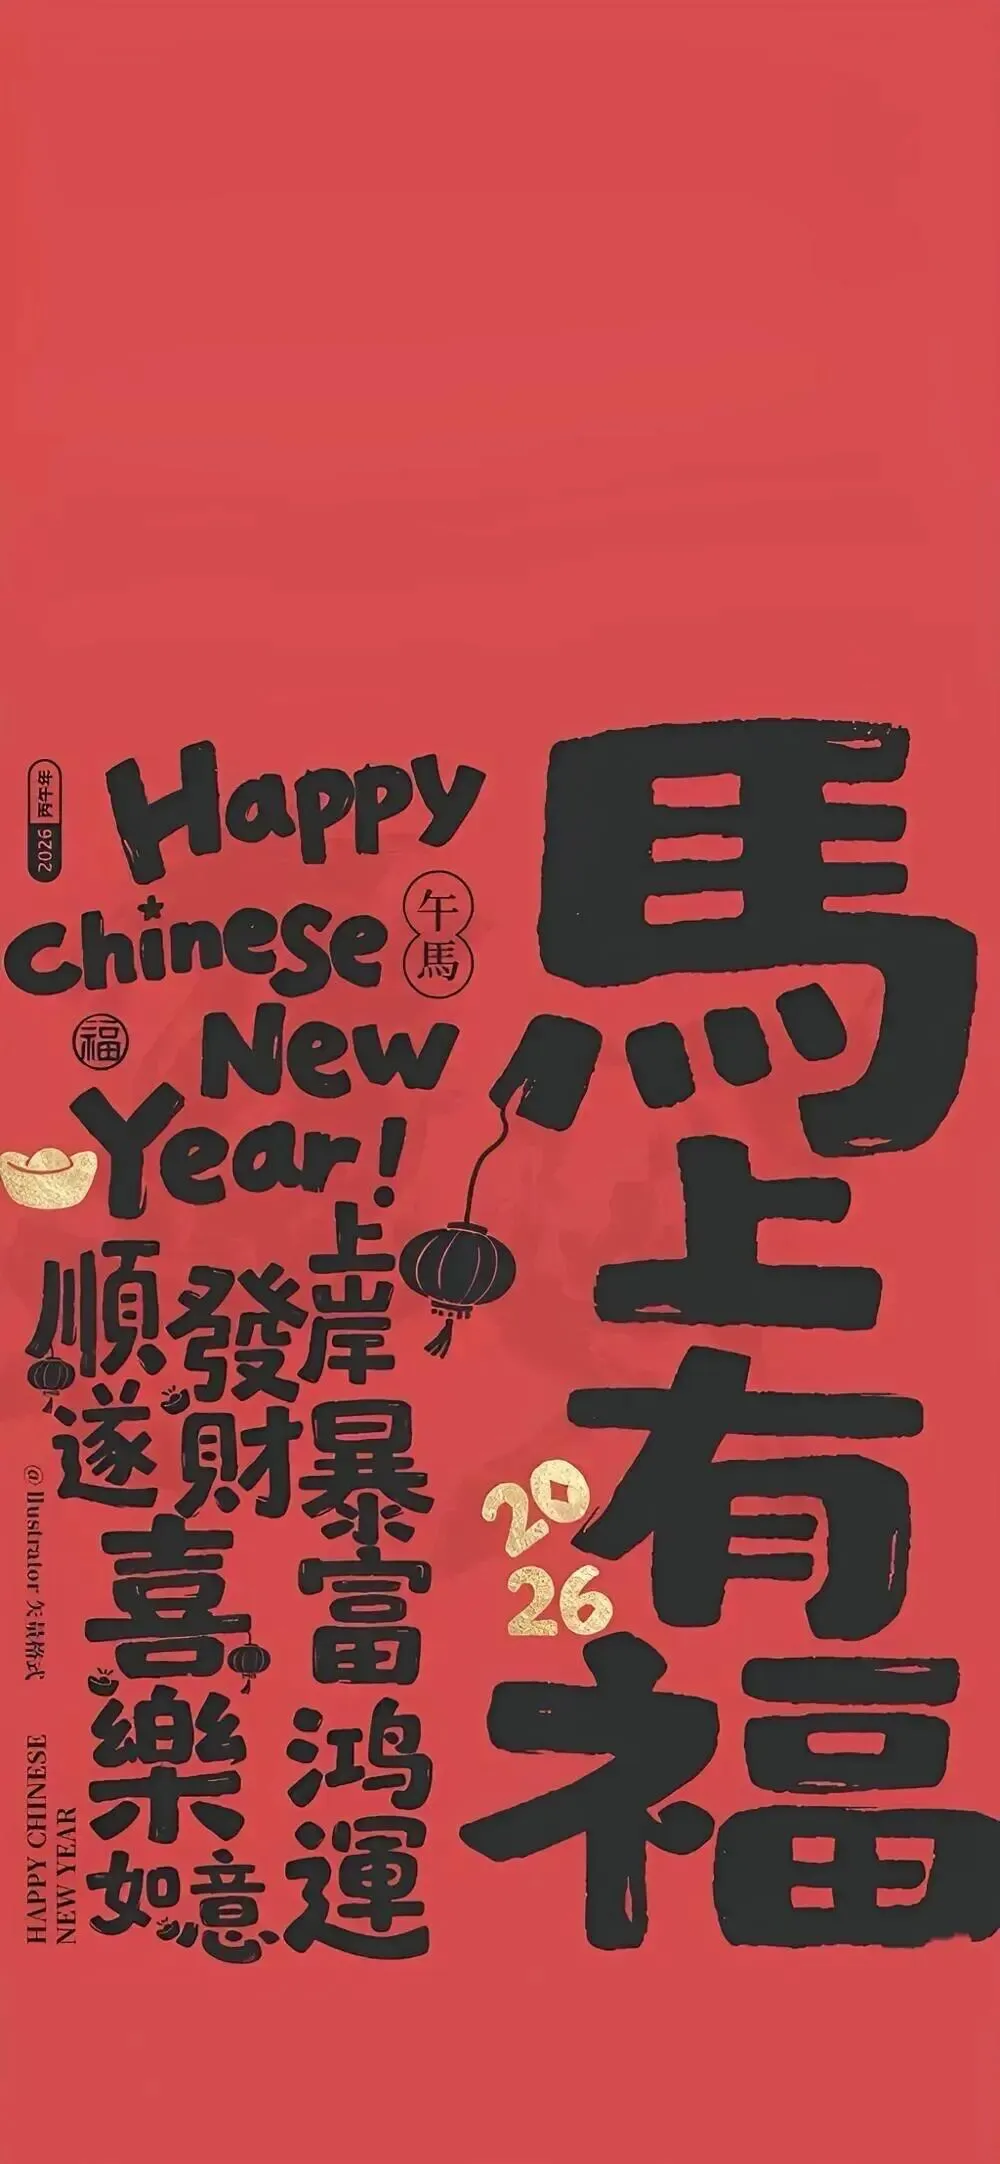 馬上有福
2026
Happy
Chinese
New
Year!
午馬
福
2026 丙午年
上岸
暴富
鴻運
發財
順遂
喜樂
如意
@ Ilustrator 矢量格式
HAPPY CHINESE
NEW YEAR